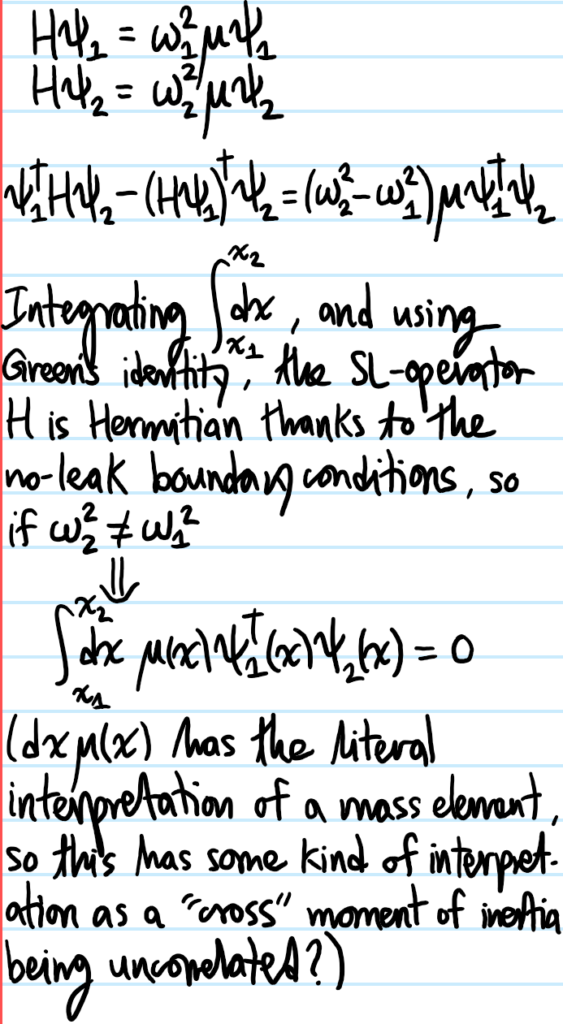 Hψ₁ = ω₁²μψ₁
Hψ₂ = ω₂²μψ₂
ψ₁†Hψ₂-(Hψ₁)†ψ₂=(ω₂²-ω₁²)μψ₁†ψ₂
Integrating ∫_{x₁}^{x₂} dx, and using
Green's identity, the SL-operator
H is Hermitian thanks to the
no-leak boundary conditions, so
if ω₂² ≠ ω₁²
⇓
∫_{x₁}^{x₂} dx μ(x)ψ₁†(x)ψ₂(x) = 0
(dxμ(x) has the literal
interpretation of a mass element,
so this has some kind of interpret-
ation as a "cross" moment of inertia
being uncorrelated?)